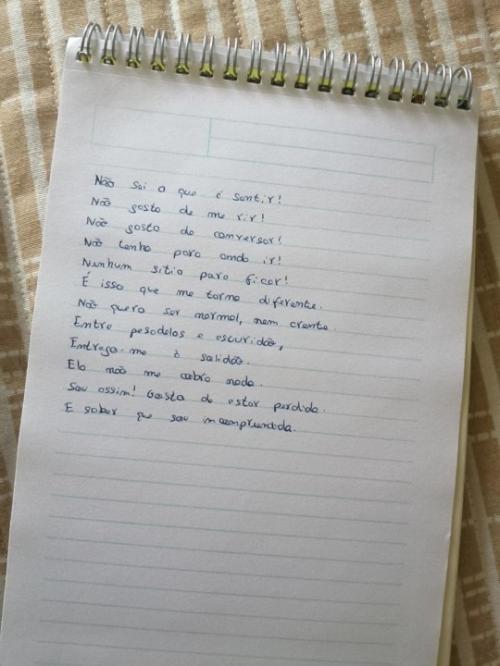 Não sei o que é sentir!
Não gosto de me rir!
Não gosto de conversar!
Não tenho para onde ir!
Nenhum sitio para ficar!
É isso que me torna diferente.
Não quero ser normal, nem crente.
Entre pesadelos e escuridão,
Entrego-me à solidão.
Ela não me cobra nada.
Sou assim! Gosto de estar perdida.
E saber que sou incompreendida.